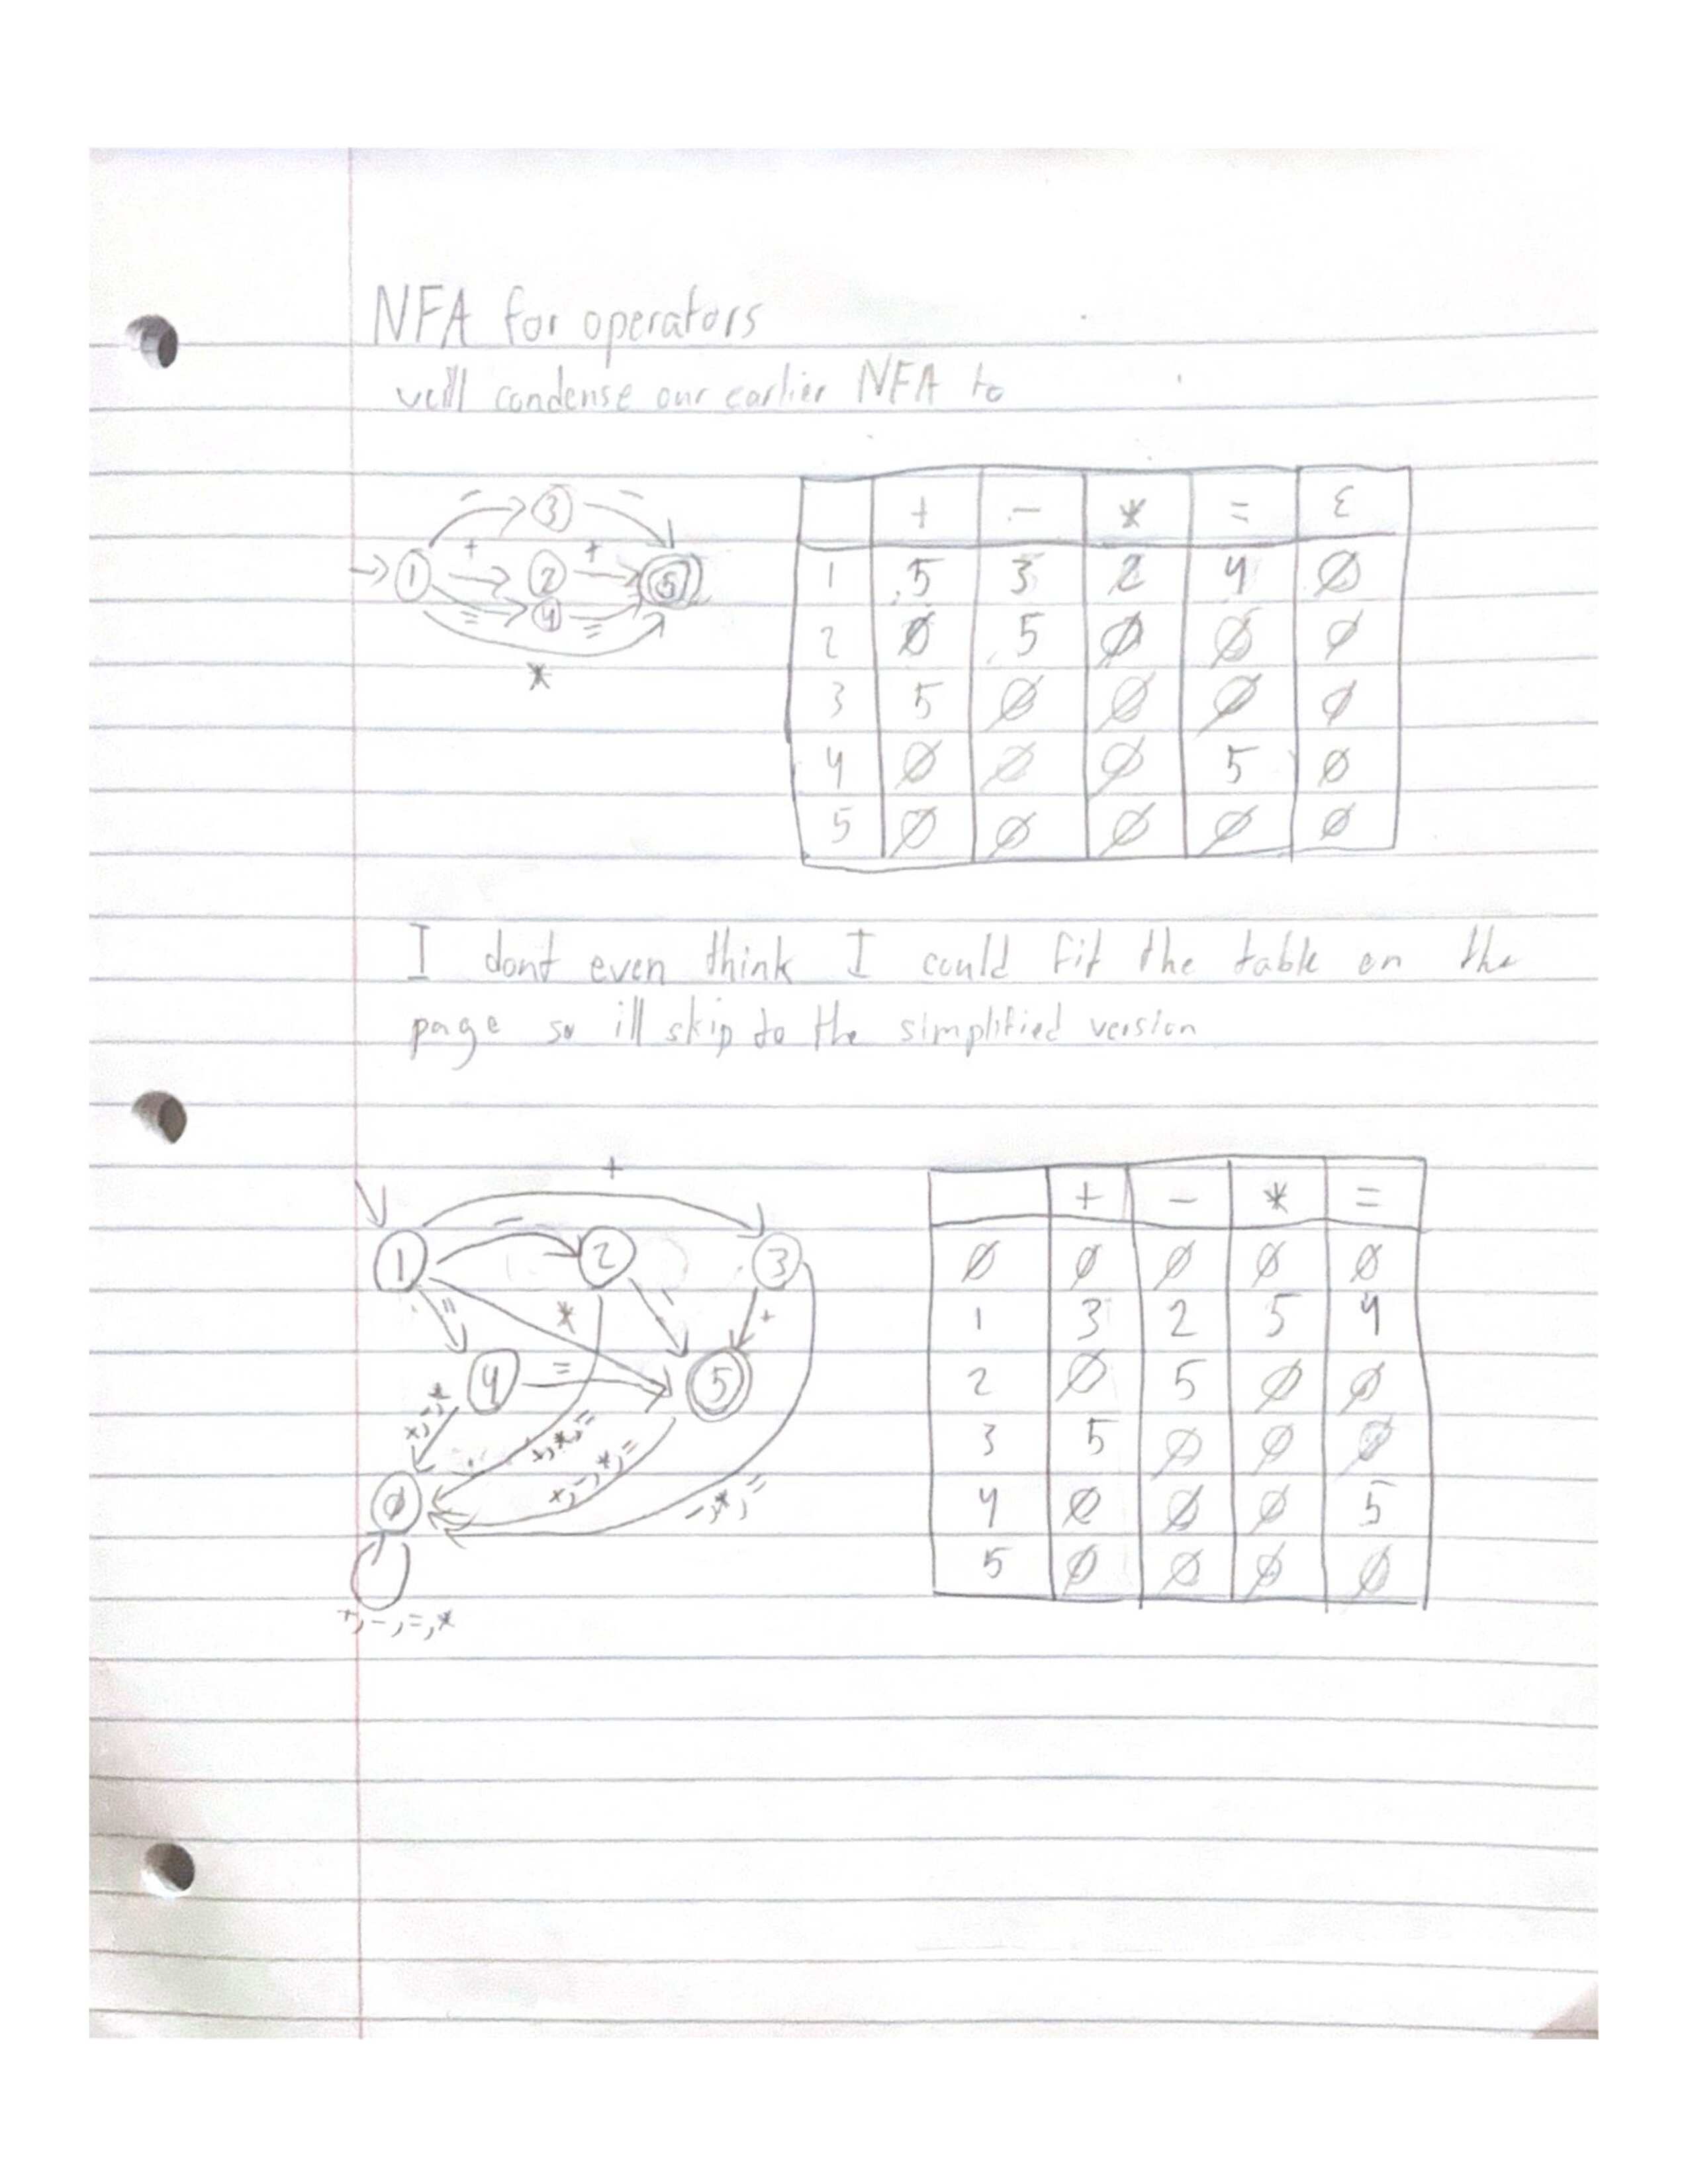 NFA for operators
we'll condense our earlier NFA to
- 3 -
+ +
1 2 5
= 4 =
*
+ - * = ε
1 5 3 2 4 Ø
2 Ø 5 Ø Ø Ø
3 5 Ø Ø Ø Ø
4 Ø Ø Ø 5 Ø
5 Ø Ø Ø Ø Ø
I dont even think I could fit the table on the
page so ill skip to the simplified version
+
-
1 2 3
= * - +
4 = 5
+,-,* +,*,= +,-,*,= -,*,=
Ø
+,-,=,*
+ - * =
Ø Ø Ø Ø Ø
1 3 2 5 4
2 Ø 5 Ø Ø
3 5 Ø Ø Ø
4 Ø Ø Ø 5
5 Ø Ø Ø Ø